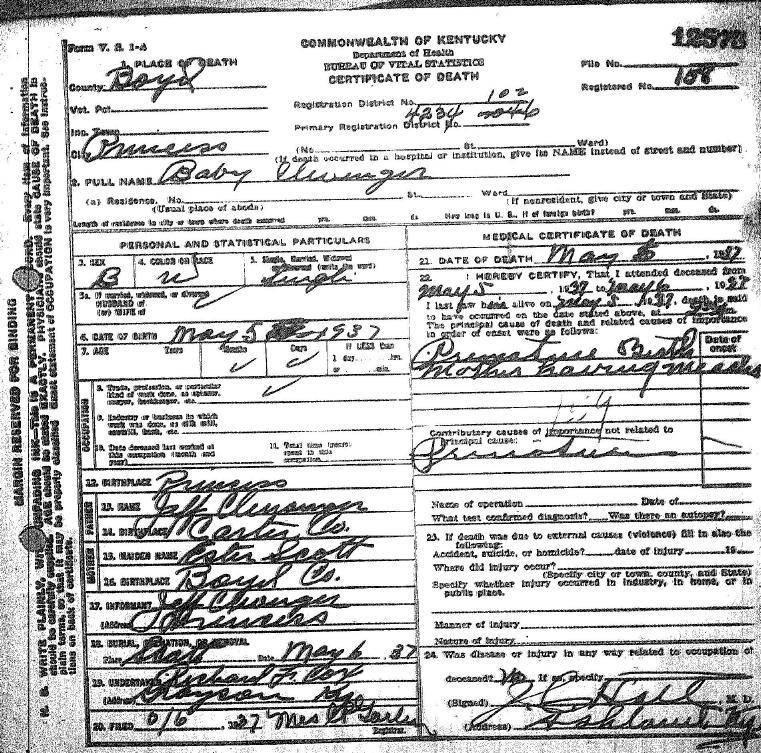 Form V. S. 1-A
COMMONWEALTH OF KENTUCKY
Department of Health
BUREAU OF VITAL STATISTICS
CERTIFICATE OF DEATH
12573
File No.
Registered No. 158
1. PLACE OF DEATH
County Boyd
Vot. Pct.
Inc. Town
City Princess
Registration District No. 102
Primary Registration District No.
(No. St. Ward)
(If death occurred in a hospital or institution, give its NAME instead of street and number)
2. FULL NAME Baby
(a) Residence. No. St. Ward
(Usual place of abode) (If nonresident, give city or town and State)
Length of residence in city or town where death occurred yrs. mos. ds. How long in U. S., if of foreign birth? yrs. mos. ds.
PERSONAL AND STATISTICAL PARTICULARS
3. SEX B
4. COLOR OR RACE W
5. Single, Married, Widowed or Divorced (write the word) Single
5a. If married, widowed, or divorced
HUSBAND of
(or) WIFE of
6. DATE OF BIRTH May 5 1937
7. AGE Years Months Days If LESS than
1 day hrs.
or min.
OCCUPATION
8. Trade, profession, or particular
kind of work done, as spinner,
sawyer, bookkeeper, etc.
9. Industry or business in which
work was done, as silk mill,
sawmill, bank, etc.
10. Date deceased last worked at
this occupation (month and
year)
11. Total time (years)
spent in this
occupation
12. BIRTHPLACE Princess
FATHER
13. NAME Jeff
14. BIRTHPLACE Carter Co.
MOTHER
15. MAIDEN NAME Scott
16. BIRTHPLACE Boyd Co.
17. INFORMANT Jeff
(Address) Princess
18. BURIAL, CREMATION, OR REMOVAL
Place Scott Date May 6 37
19. UNDERTAKER Richard F. Cox
(Address) Grayson Ky
20. FILED 6/6, 1937 Mrs
Registrar.
MEDICAL CERTIFICATE OF DEATH
21. DATE OF DEATH May 6, 1937
22. I HEREBY CERTIFY, That I attended deceased from
May 5, 1937 to May 6, 1937
I last saw h alive on May 5 1937, death is said
to have occurred on the date stated above, at m.
The principal cause of death and related causes of importance
in order of onset were as follows:
Date of onset
Premature Birth
Mother having Measles
Contributory causes of importance not related to
principal cause:
Name of operation Date of
What test confirmed diagnosis? Was there an autopsy?
23. If death was due to external causes (violence) fill in also the
following:
Accident, suicide, or homicide? date of injury 19
Where did injury occur?
(Specify city or town, county, and State)
Specify whether injury occurred in industry, in home, or in
public place.
Manner of injury
Nature of injury
24. Was disease or injury in any way related to occupation of
deceased? No If so, specify
(Signed) Hall M. D.
(Address) Ashland Ky
MARGIN RESERVED FOR BINDING